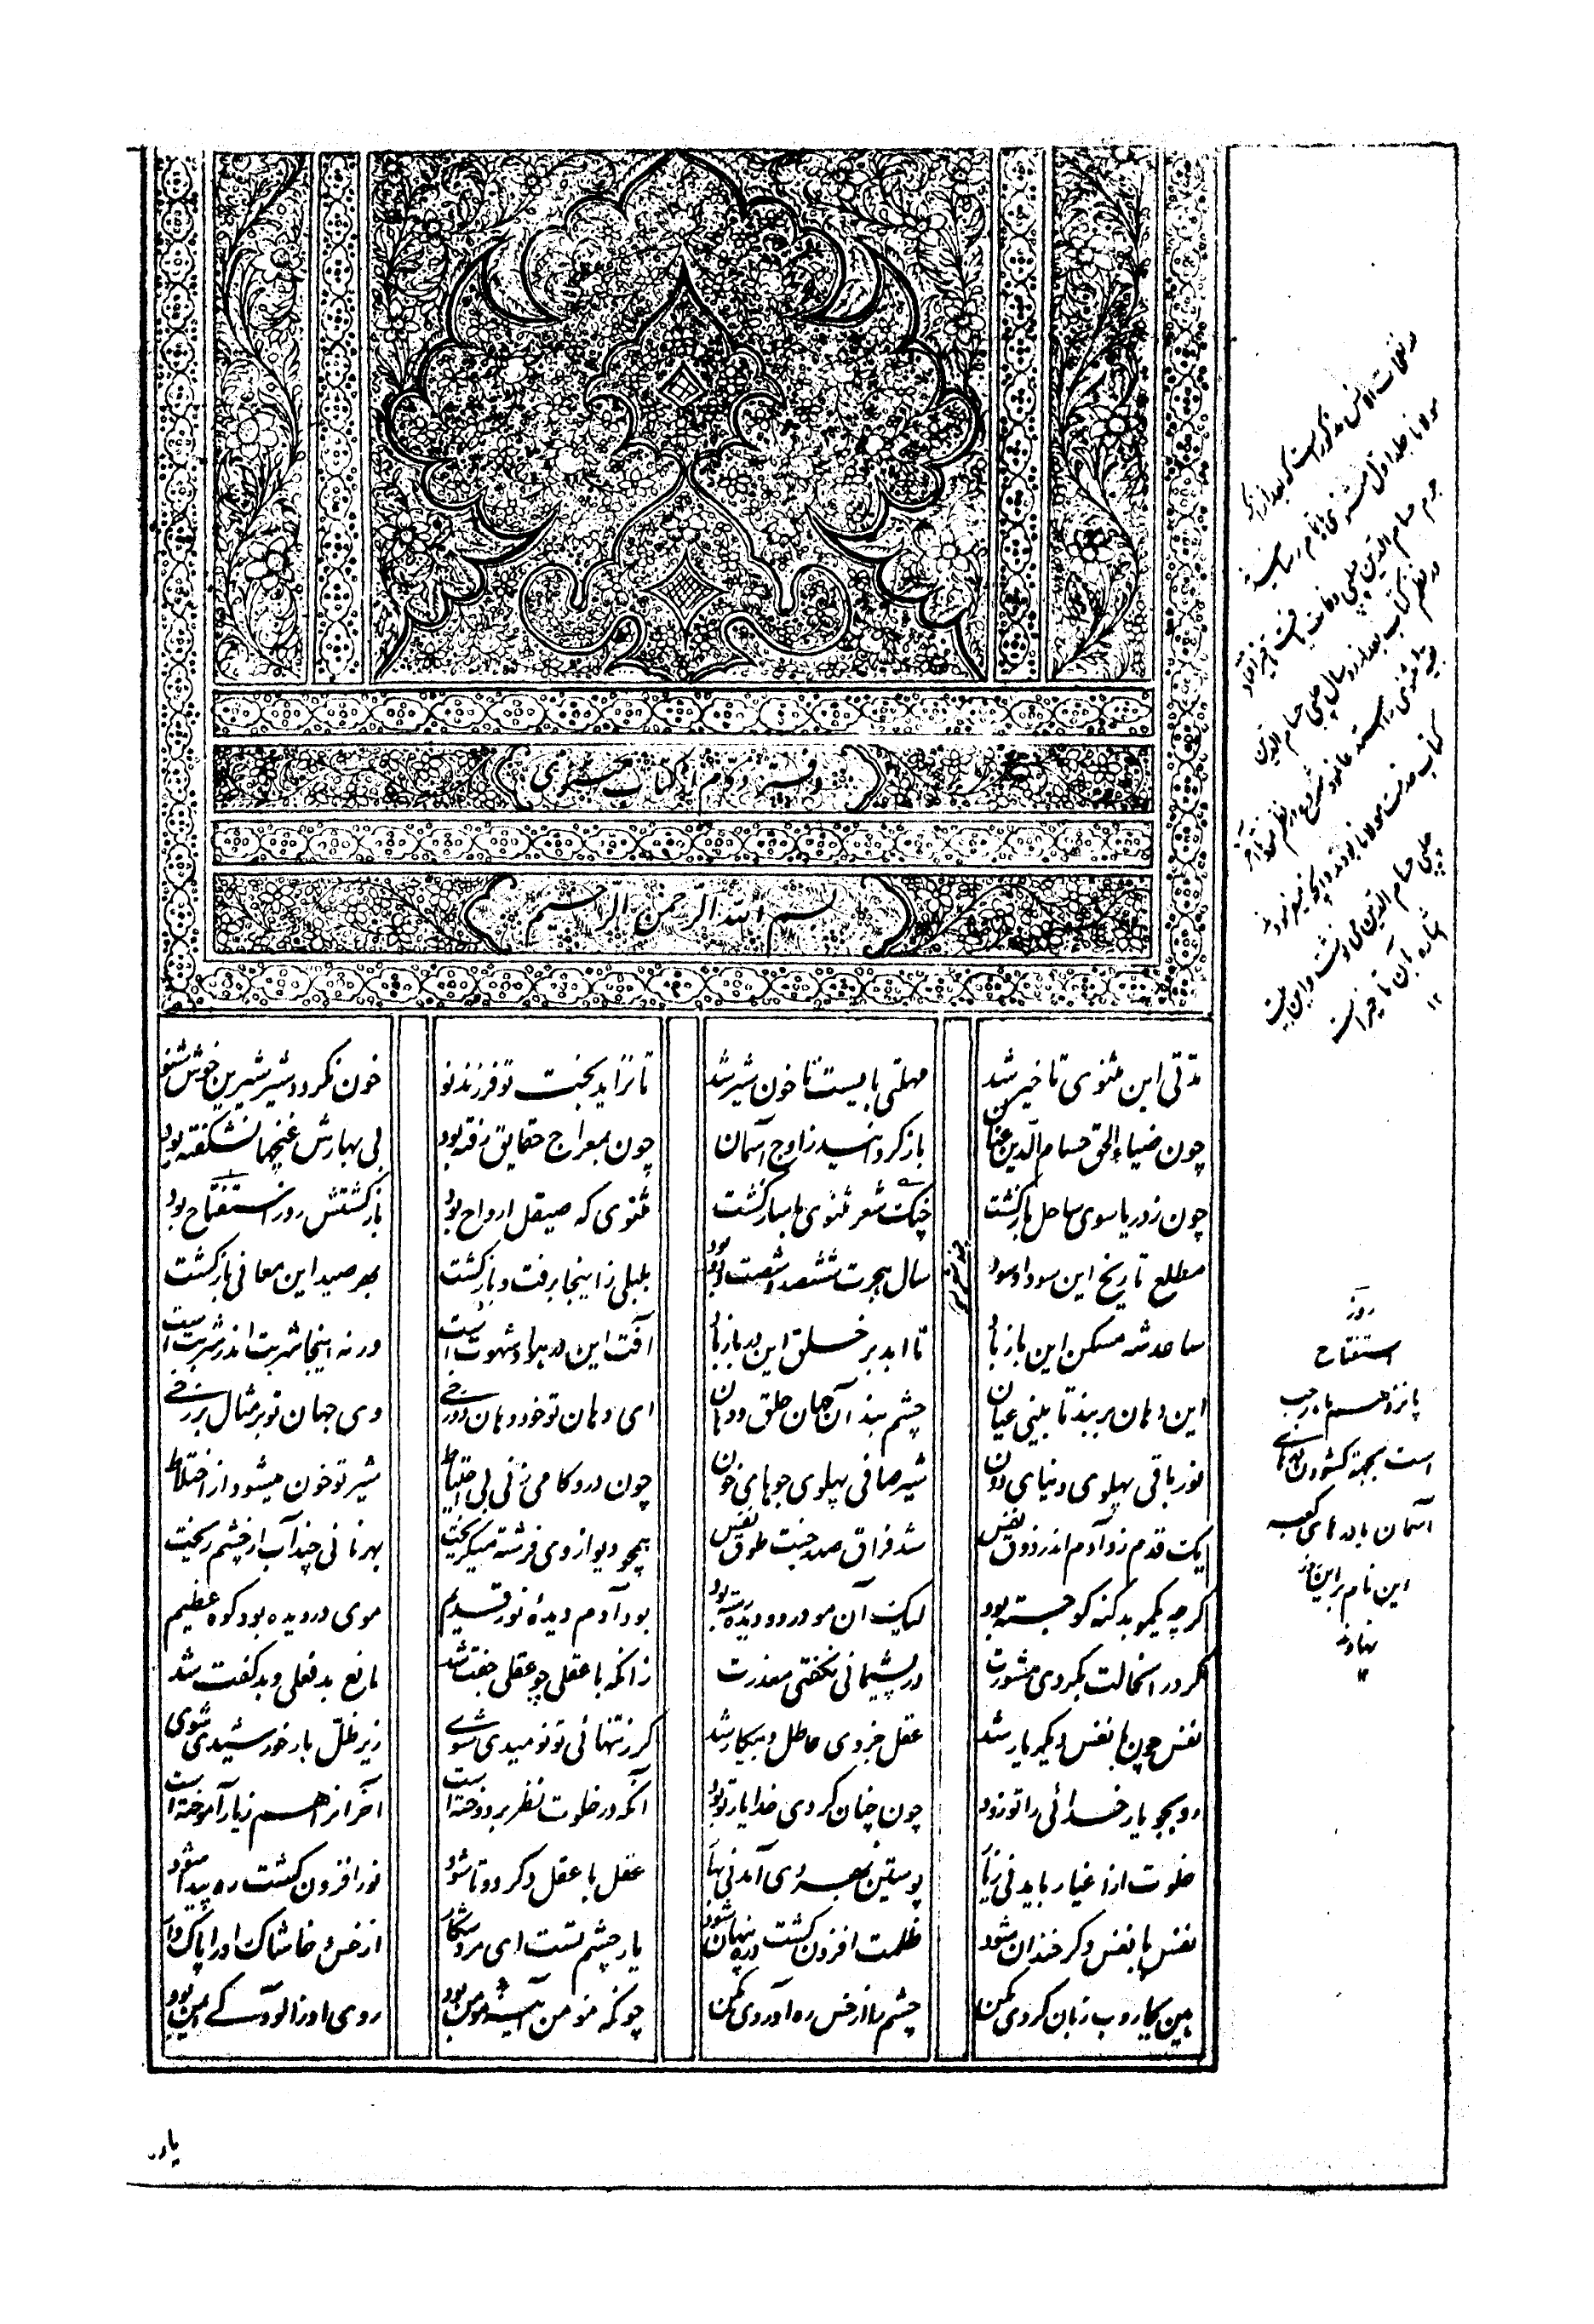 دفتر دوم از کتاب مثنوی
بسم الله الرحمن الرحیم
مدتی این مثنوی تاخیر شد مهلتی بایست تا خون شیر شد تا نزاید بخت تو فرزند نو خون نکردد شیر شیرین خوش شنو
چون ضیاء الحق حسام الدین عنان باز کردانید ز اوج آسمان چون بمعراج حقایق رفته بود بی بهارش غنچها نشکفته بود
چون ز دریا سوی ساحل بازکشت چنک شعر مثنوی با ساز کشت مثنوی که صیقل ارواح بود بازکشتش روز استفتاح بود
مطلع تاریخ این سودا و سود سال هجرت ششصد و شصت و دو بود بلبلی زاینجا برفت و بازکشت بهر صید این معانی بازکشت
ساعد شه مسکن این باز باد تا ابد بر خلق این در باز باد آفت این در هوا و شهوت است ورنه اینجا شربت اندر شربت است
این دهان بربند تا بینی عیان چشم بند آن جهان حلق و دهان ای دهان تو خود دهان دوزخی وی جهان تو بر مثال برزخی
نور باقی پهلوی دنیای دون شیر صافی پهلوی جوهای خون چون درو کامی زنی بی احتیاط شیر تو خون میشود از اختلاط
یک قدم زد آدم اندر ذوق نفس شد فراق صدر جنت طوق نفس همچو دیو از وی فرشته میکریخت بهر نانی چند آب از چشم ریخت
کرچه یکمو بد کنه کو جسته بود لیک آن مو در دو دیده رسته بود بود آدم دیدهٔ نور قدیم موی در دیده بود کوه عظیم
کر در آنحالت بکردی مشورت در پشیمانی نکفتی معذرت زانکه با عقلی چو عقلی جفت شد مانع بد فعلی و بد کفت شد
نفس چون با نفس دیکر یار شد عقل جزوی عاطل و بیکار شد کر ز تنهائی تو نومیدی شوی زیر ظل یار خورشیدی شوی
رو بجو یار خدائی را تو زود چون چنان کردی خدا یار تو بود آنکه در خلوت نظر بردوخته است آخر آنرا هم ز یار آموخته است
خلوت از اغیار باید نی ز یار پوستین بهر دی آمد نی بهار عقل با عقل دکر دوتا شود نور افزون کشت ره پیدا شود
نفس با نفس دکر خندان شود ظلمت افزون کشت ره پنهان شود یار چشم تست ای مرد شکار از خس و خاشاک او را پاک دار
هین بجاروب زبان کردی مکن چشم را از خس ره آوردی مکن چونکه مؤمن آینه مؤمن بود روی او ز آلودکی ایمن بود
در نفحات الانس مذکور است که بعد از آنکه
مولانا جلد اول از مثنوی باتمام رسانید
حرم حسام الدین چلپی وفات یافت
در نظم کتاب بعد از دو سال چلپی حسام الدین
چلپی حسام الدین می نوشت و این بیت
اشاره بآن تاخیر است
۱۲
روز
استفتاح
پانزدهم ماه رجب
است بجهة کشودن درهای
آسمان یا درهای کعبه
این نام بر این روز
نهادند
۱۲
یار